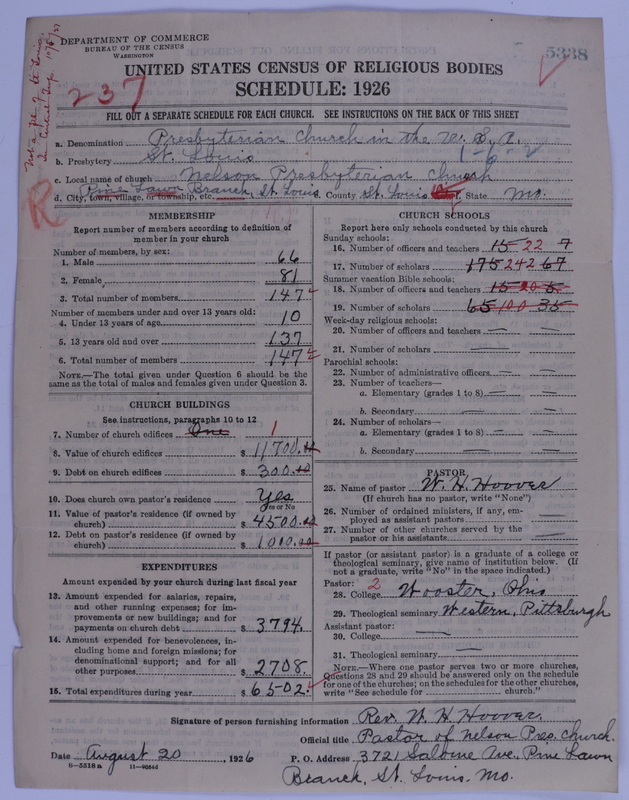 DEPARTMENT OF COMMERCE
BUREAU OF THE CENSUS
WASHINGTON
5338
237
UNITED STATES CENSUS OF RELIGIOUS BODIES
SCHEDULE: 1926
FILL OUT A SEPARATE SCHEDULE FOR EACH CHURCH. SEE INSTRUCTIONS ON THE BACK OF THIS SHEET
a. Denomination Presbyterian Church in the U. S. A.
1-6-2
b. Presbytery St. Louis
c. Local name of church Nelson Presbyterian Church
d. City, town, village, or township, etc. Pine Lawn Branch, St. Louis County St. Louis State Mo.
R
MEMBERSHIP
Report number of members according to definition of
member in your church
Number of members, by sex:
1. Male 66
2. Female 81
3. Total number of members 147
Number of members under and over 13 years old:
4. Under 13 years of age 10
5. 13 years old and over 137
6. Total number of members 147
NOTE.—The total given under Question 6 should be the
same as the total of males and females given under Question 3.
CHURCH BUILDINGS
See instructions, paragraphs 10 to 12
7. Number of church edifices One 1
8. Value of church edifices $ 11700.00
9. Debt on church edifices $ 300.00
10. Does church own pastor's residence Yes
Yes or No
11. Value of pastor's residence (if owned by
church) $ 4500.00
12. Debt on pastor's residence (if owned by
church) $ 1010.00
EXPENDITURES
Amount expended by your church during last fiscal year
13. Amount expended for salaries, repairs,
and other running expenses; for im-
provements or new buildings; and for
payments on church debt $ 3794.
14. Amount expended for benevolences, in-
cluding home and foreign missions; for
denominational support; and for all
other purposes $ 2708.
15. Total expenditures during year $ 6502.
CHURCH SCHOOLS
Report here only schools conducted by this church
Sunday schools:
16. Number of officers and teachers 15 22 7
17. Number of scholars 175 242 67
Summer vacation Bible schools:
18. Number of officers and teachers 15 20 5
19. Number of scholars 65 100 35
Week-day religious schools:
20. Number of officers and teachers — —
21. Number of scholars — —
Parochial schools:
22. Number of administrative officers — —
23. Number of teachers—
a. Elementary (grades 1 to 8) — —
b. Secondary — —
24. Number of scholars—
a. Elementary (grades 1 to 8) — —
b. Secondary — —
PASTOR
25. Name of pastor W. H. Hoover
(If church has no pastor, write "None")
26. Number of ordained ministers, if any, em-
ployed as assistant pastors —
27. Number of other churches served by the
pastor or his assistants —
If pastor (or assistant pastor) is a graduate of a college or
theological seminary, give name of institution below. (If
not a graduate, write "No" in the space indicated.)
Pastor: 2
28. College Wooster, Ohio
29. Theological seminary Western, Pittsburgh
Assistant pastor:
30. College —
31. Theological seminary —
NOTE.—Where one pastor serves two or more churches,
Questions 28 and 29 should be answered only on the schedule
for one of the churches; on the schedules for the other churches,
write "See schedule for church."
Signature of person furnishing information Rev. W. H. Hoover.
Official title Pastor of Nelson Pres. Church.
Date August 20, 1926 P. O. Address 3721 Salome Ave. Pine Lawn
8—5518 a
Branch, St. Louis. Mo.